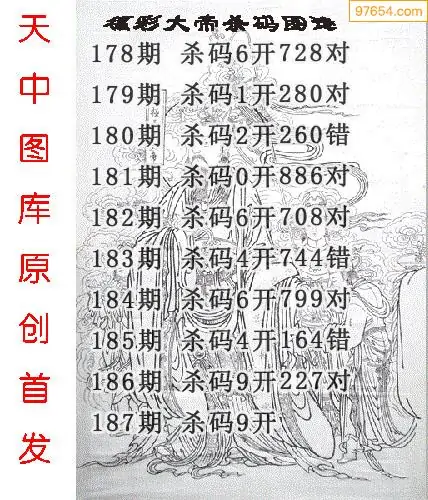 97654.com
福彩大帝杀码图谜
178期 杀码6开728对
179期 杀码1开280对
180期 杀码2开260错
181期 杀码0开886对
182期 杀码6开708对
183期 杀码4开744错
184期 杀码6开799对
185期 杀码4开164错
186期 杀码9开227对
187期 杀码9开
天中图库原创首发